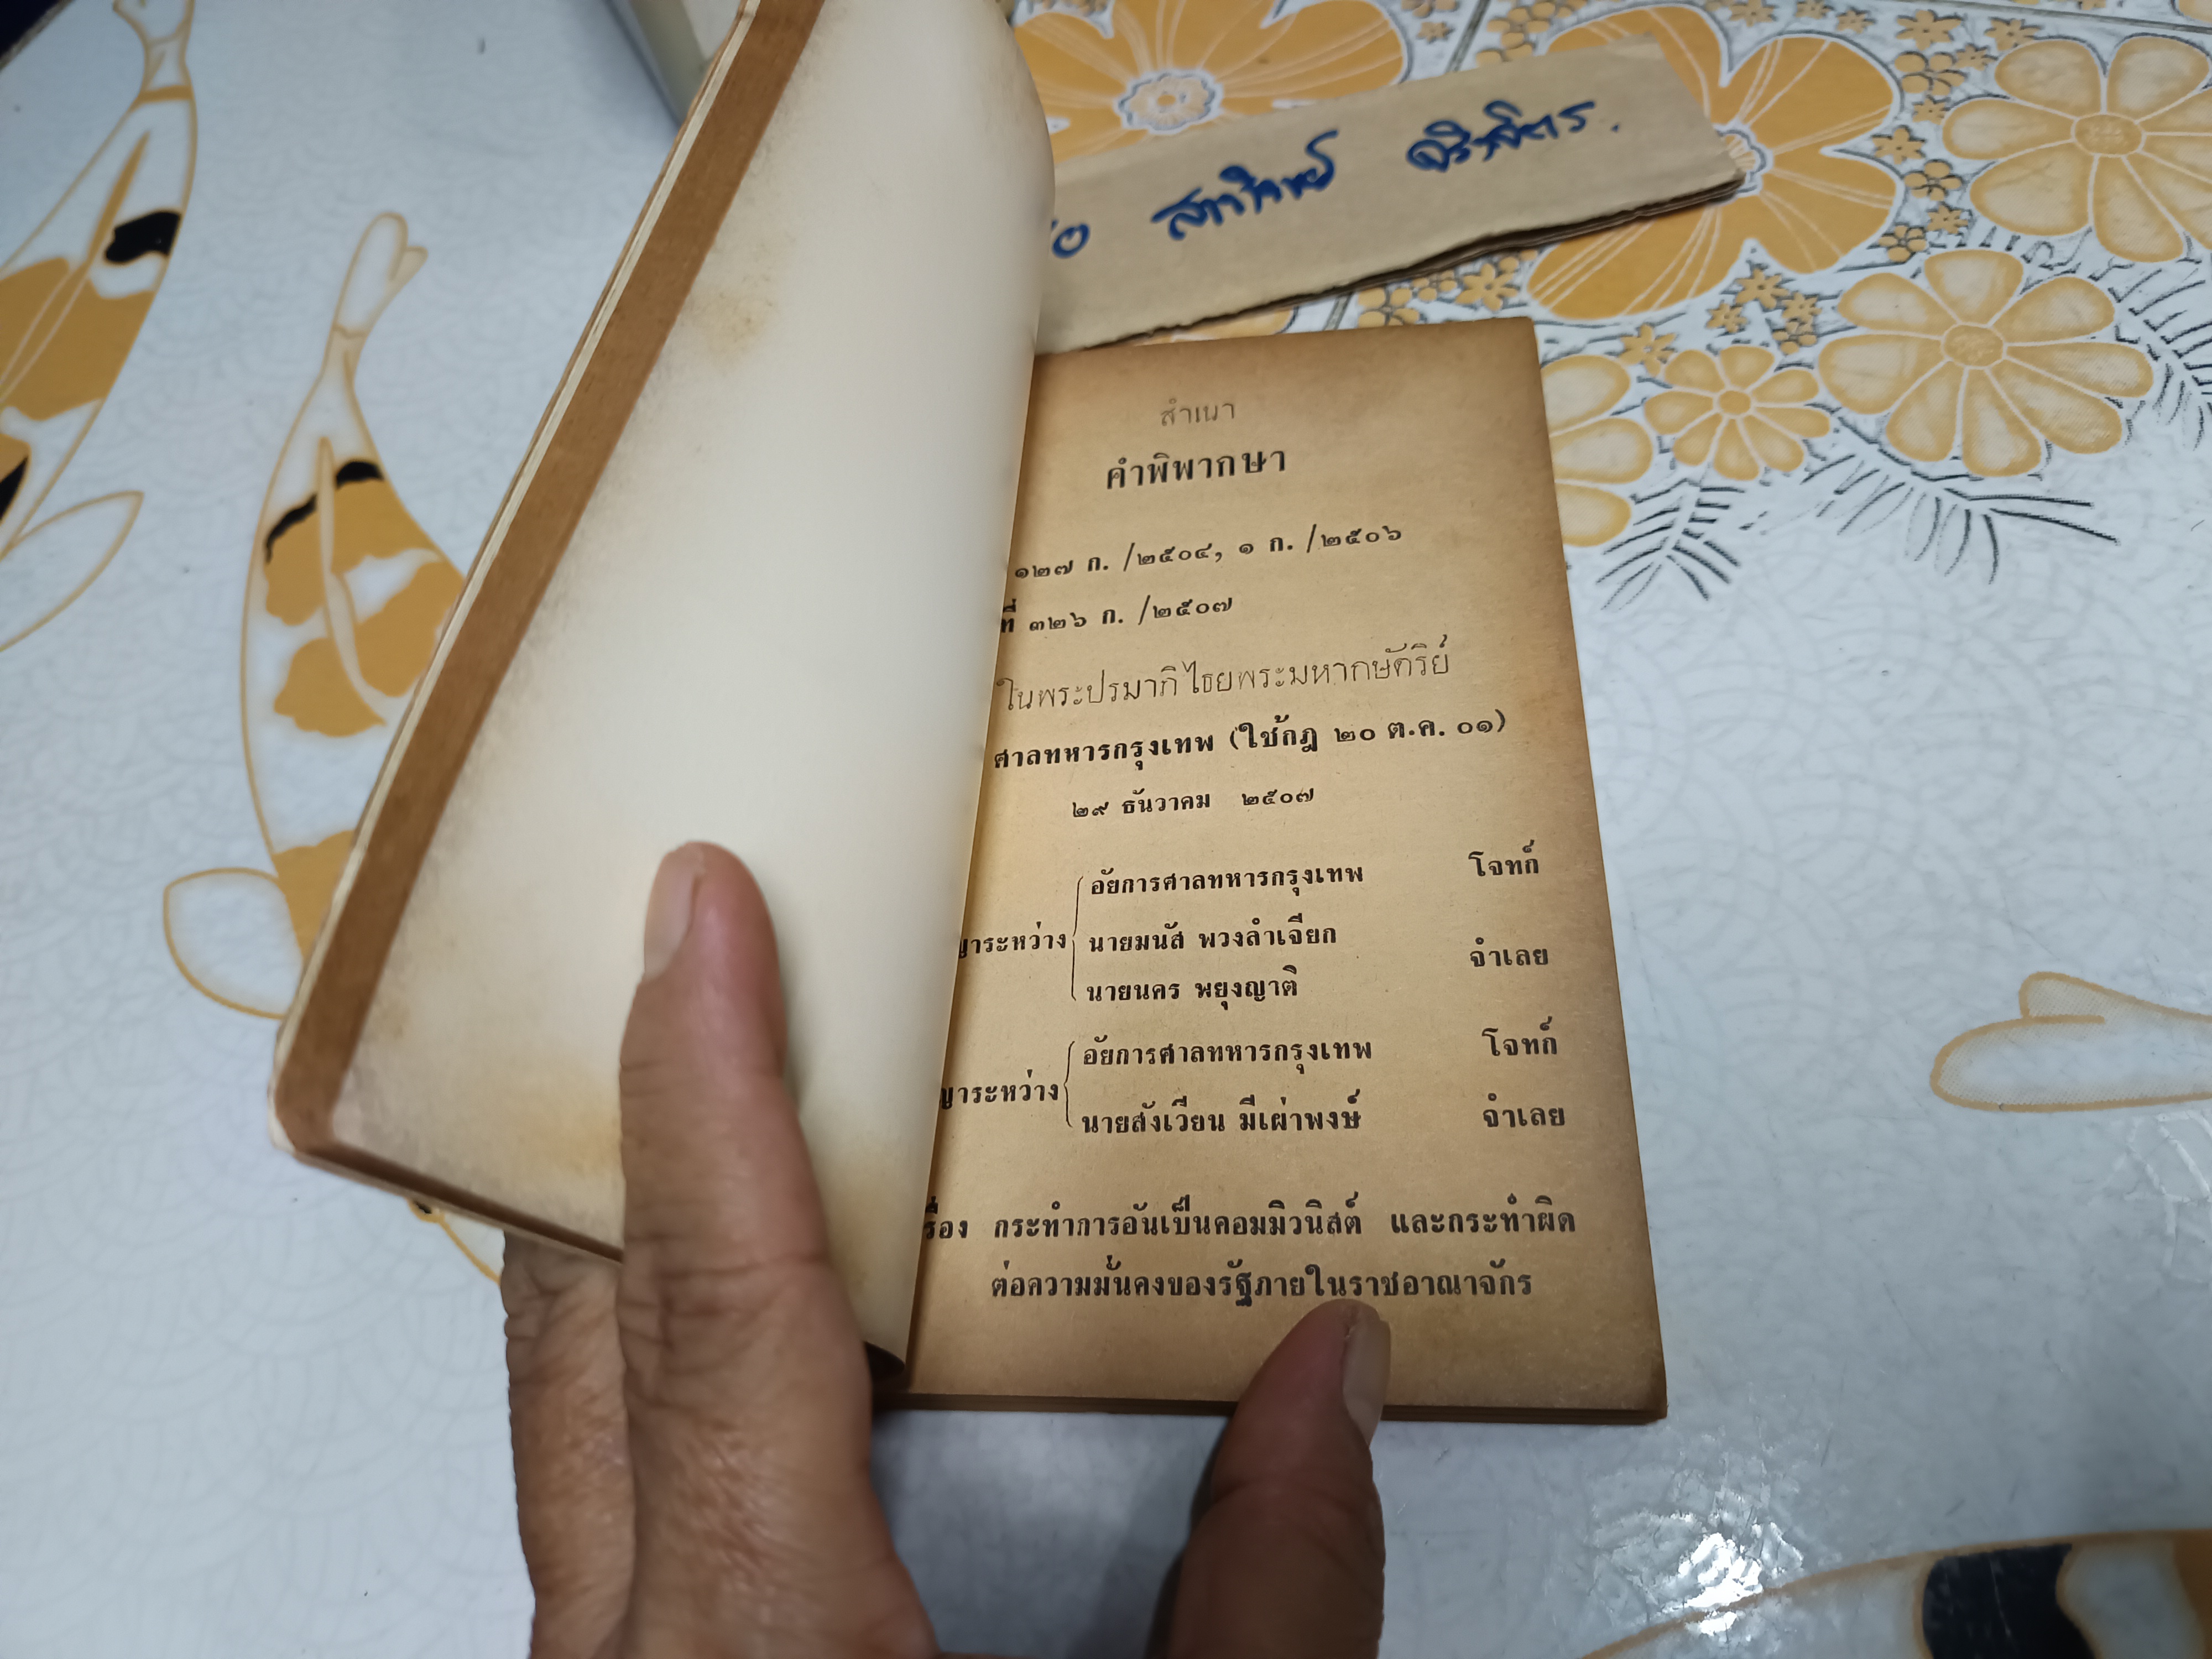 สำเนา
คำพิพากษา
๑๒๗ ก. /๒๕๐๔, ๑ ก. /๒๕๐๖
ที่ ๓๒๖ ก. /๒๕๐๗
ในพระปรมาภิไธยพระมหากษัตริย์
ศาลทหารกรุงเทพ (ใช้กฎ ๒๐ ต.ค. ๐๑)
๒๙ ธันวาคม ๒๕๐๗
อัยการศาลทหารกรุงเทพ โจทก์
ญาระหว่าง นายมนัส พวงลำเจียก
นายนคร พยุงญาติ จำเลย
อัยการศาลทหารกรุงเทพ โจทก์
ญาระหว่าง
นายสังเวียน มีเผ่าพงษ์ จำเลย
รื่อง กระทำการอันเป็นคอมมิวนิสต์ และกระทำผิด
ต่อความมั่นคงของรัฐภายในราชอาณาจักร